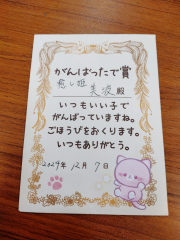 がんばったで賞
癒し担
美波 殿
いつもいい子で
がんばっていますね。
ごほうびをおくります。
いつもありがとう。
2024年 12月 7日